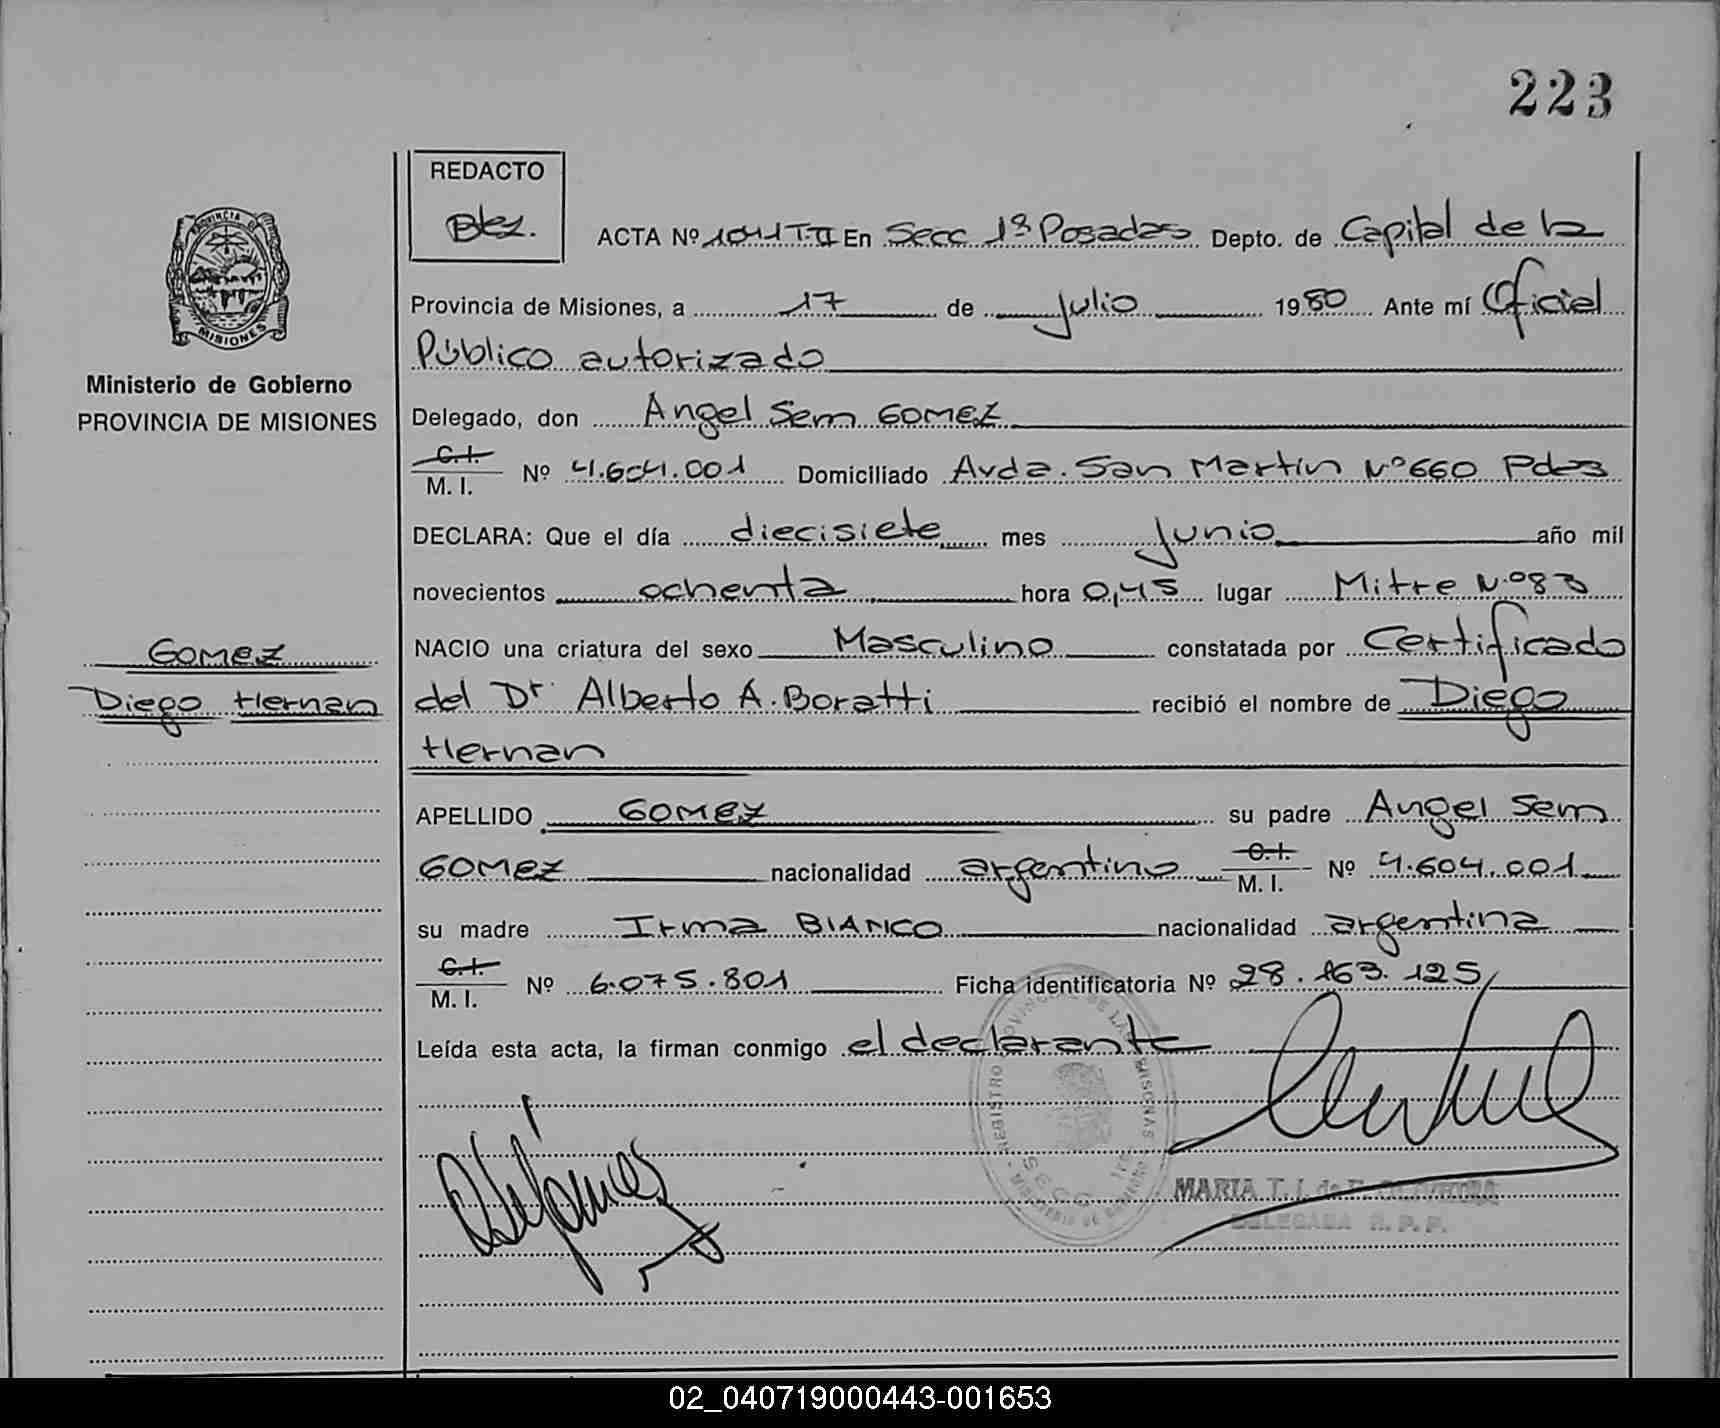 223
REDACTO
Blez.
ACTA Nº 1041 T. II En Secc 1ª Posadas Depto. de Capital de la
Provincia de Misiones, a 17 de Julio 1980 Ante mí Oficial
Público autorizado
Delegado, don Angel Sem GOMEZ
C. I. M. I. Nº 4.604.001 Domiciliado Avda. San Martin Nº 660 Pdas
DECLARA: Que el día diecisiete mes Junio año mil
novecientos ochenta hora 0,45 lugar Mitre Nº 83
NACIO una criatura del sexo Masculino constatada por Certificado
del Dr. Alberto A. Boratti recibió el nombre de Diego
Hernan
APELLIDO GOMEZ su padre Angel Sem
GOMEZ nacionalidad argentino C. I. M. I. Nº 4.604.001
su madre Irma BIANCO nacionalidad argentina
C. I. M. I. Nº 6.075.801 Ficha identificatoria Nº 28.163.125
Leída esta acta, la firman conmigo el declarante
PROVINCIA DE MISIONES
Ministerio de Gobierno
PROVINCIA DE MISIONES
GOMEZ
Diego Hernan
MARIA T. I. de
DELEGADA R. P. P.
02_040719000443-001653